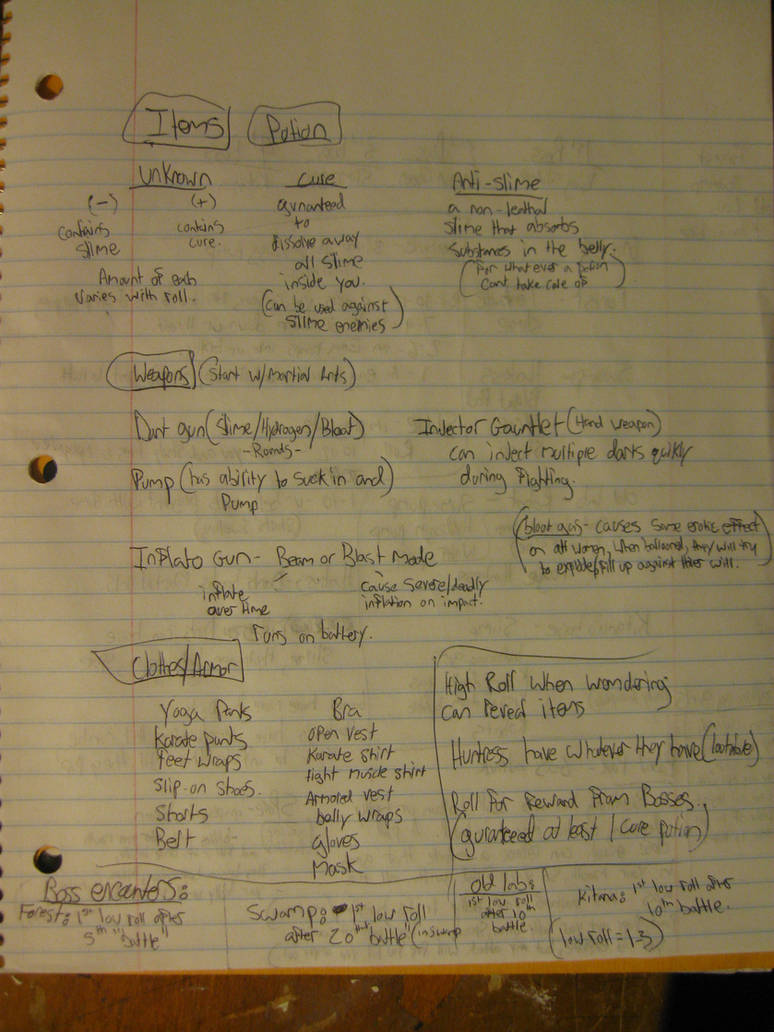 Items
Potion
Unknown
(-)
(+)
contains
slime
contains
cure.
Amount of each
varies with roll.
Cure
gurranteed
to
dissolve away
all slime
inside you.
(can be used against
slime enemies)
Anti-slime
a non-leathal
slime that absorbs
substances in the belly.
(For what ever a potion
cant take care of)
Weapons (Start w/Martial Arts)
Dart gun (Slime/Hydrogen/Bloat)
-Rounds-
Pump (has ability to suck in and
Pump)
Injector Gauntlet (Hand weapon)
can inject multiple darts quikly
during fighting.
(bloat gas- causes some erotic effect
on all women, when ballooned, they will try
to explode/fill up against their will.)
Inflato Gun- Beam or Blast Mode
inflate
over time
cause severe/deadly
inflation on impact.
runs on battery.
Clothes/Armor
Yoga Pants
Karate pants
feet wraps
Slip-on shoes.
Shorts
Belt
Bra
open vest
Karate shirt
tight muscle shirt
Armored vest
belly wraps
gloves
Mask
High Roll when wondering
can reveal items
Huntress have whatever they have (lootable)
Roll for Reward From Bosses.
(guranteed at least 1 cure potion)
Boss encounters:
Forest: 1st low roll after
5th "battle"
Swamp: 1st low roll
after 20th "battle" (in swamp
Old lab:
1st low roll
after 10th
battle
Kitana: 1st low roll after
10th battle.
(low roll = 1-3)